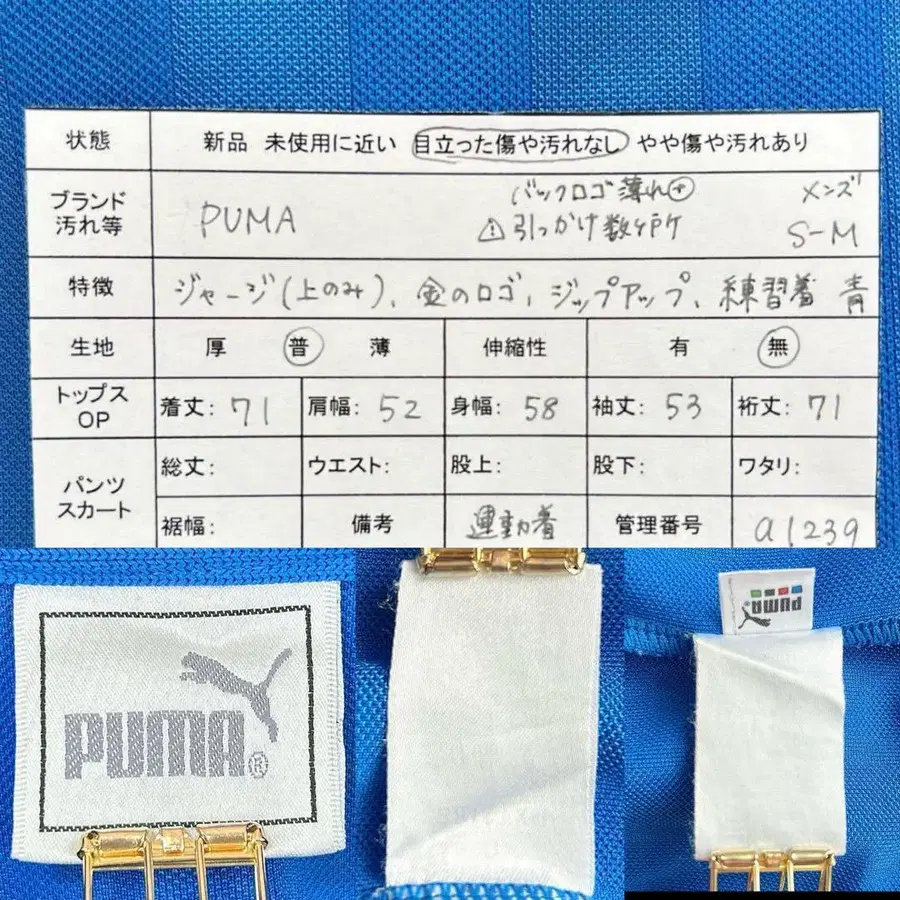 状態 新品 未使用に近い 目立った傷や汚れなし やや傷や汚れあり
ブランド 汚れ等 PUMA バックロゴ薄れ⊕ メンズ
⚠引っかけ数ヶ所 S-M
特徴 ジャージ(上のみ)、金のロゴ、ジップアップ、練習着 青
生地 厚 普 薄 伸縮性 有 無
トップス OP 着丈: 71 肩幅: 52 身幅: 58 袖丈: 53 裄丈: 71
パンツ スカート 総丈: ウエスト: 股上: 股下: ワタリ:
裾幅: 備考 運動着 管理番号 a1239
PUMA®
PUMA